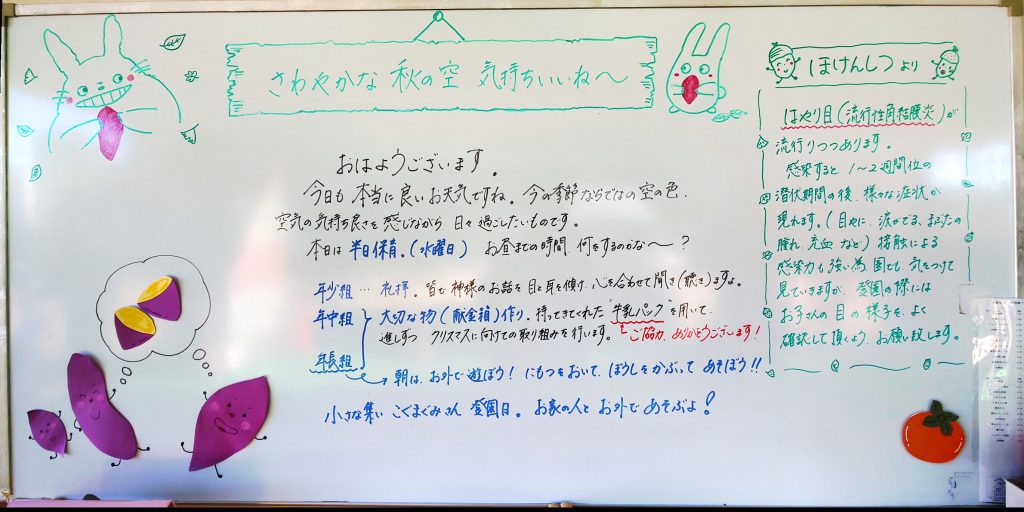 さわやかな 秋の空 気持ちいいね〜
おはようございます。
今日も 本当に良いお天気ですね。今の季節ならではの空の色、
空気の気持ち良さを感じながら 日々過ごしたいものです。
本日は 半日保育。(水曜日) お昼までの時間 何をするのかな〜?
年少組 … 礼拝。皆で 神様のお話を 目と耳を傾け、心を合わせて聞き(聴き)ますよ。
年中組 大切な物(献金箱)作り。持ってきてくれた "牛乳パック" を用いて、
進しずつ クリスマスに向けての取り組みを行います。 ご協力、ありがとうございます!
年長組
朝は、お外で遊ぼう! にもつをおいて、ぼうしをかぶって あそぼう!!
小さな集い こぐまぐみさん 登園日。お家の人と お外で あそぶよ!
ほけんしつ より
はやり目(流行性角結膜炎)が
流行りつつあります。
感染すると 1〜2週間位の
潜伏期間の後、様々な症状が
現れます。(目やに、涙がでる、まぶたの
腫れ、充血 など) 接触による
感染力も強い為 園でも 気をつけて
見ていきますが、登園の際には
お子さんの 目の 様子を、よく
確認して頂くよう、お願い致します。